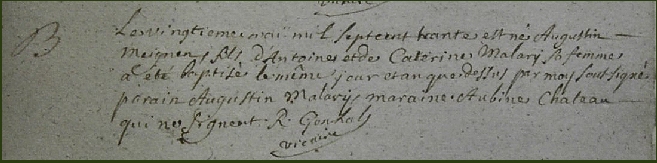 B
Le vingtieme aoû mil sept cent trante est né Augustin
meignen fils d'Antoine et de Caterine Malary sa femme
a été baptisé le même jour et an que dessus par moy soussigné
parain Augustin Malary, maraine Aubine Chateau
qui ne signent. R. Gonhal
vicaire